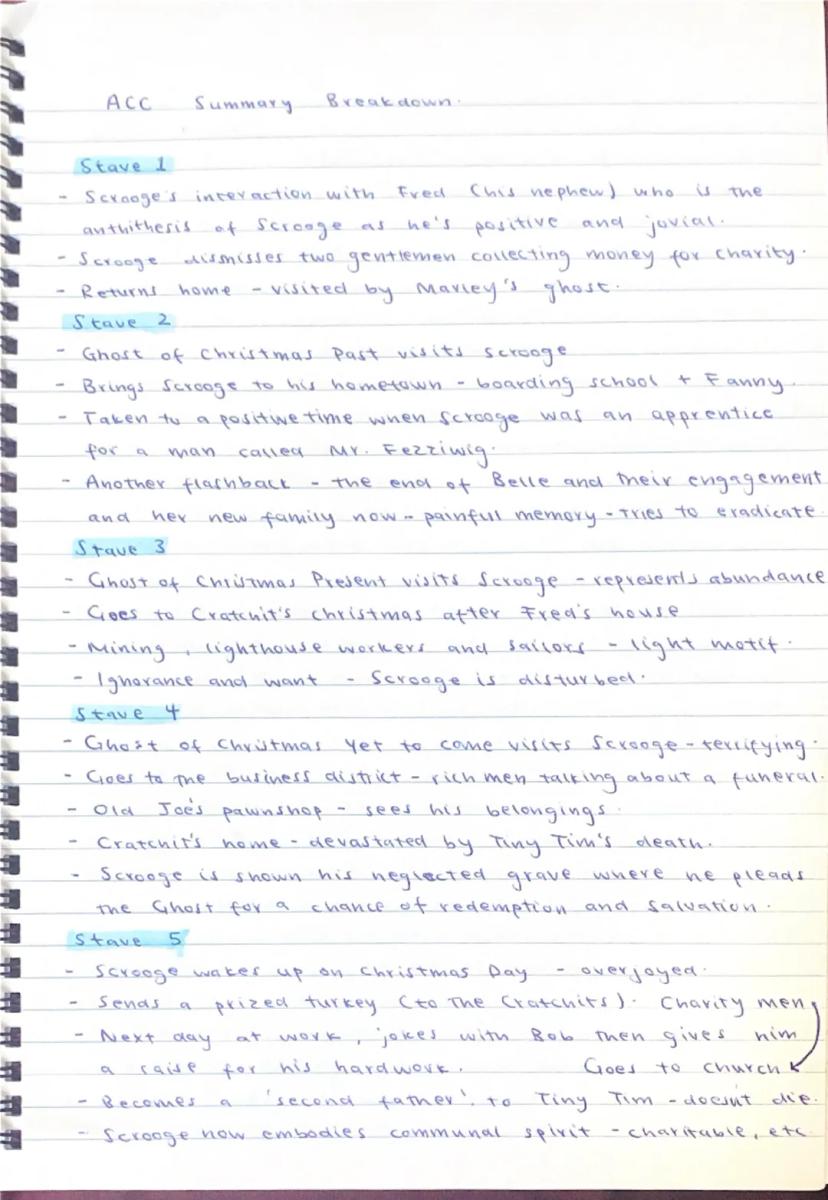 ACC Summary Breakdown.
Stave 1
- Scrooge's interaction with Fred (his nephew) who is the
anthithesis of Scrooge as he's positive and jovial.
- Scrooge dismisses two gentlemen collecting money for charity.
- Returns home - visited by Marley's ghost.
Stave 2
- Ghost of Christmas Past visits Scrooge
- Brings Scrooge to his hometown - boarding school + Fanny.
- Taken to a positive time when Scrooge was an apprentice
for a man called Mr. Fezziwig.
- Another flashback - the end of Belle and their engagement
and her new family now - painful memory - tries to eradicate.
Stave 3
- Ghost of Christmas Present visits Scrooge - represents abundance
- Goes to Cratchit's christmas after Fred's house
- Mining, lighthouse workers and sailors - light motif.
- Ignorance and want - Scrooge is disturbed.
Stave 4
- Ghost of Christmas Yet to come visits Scrooge - terrifying.
- Goes to the business district - rich men talking about a funeral.
- Old Joe's pawnshop - sees his belongings.
- Cratchit's home - devastated by Tiny Tim's death.
- Scrooge is shown his neglected grave where he pleads
the Ghost for a chance of redemption and salvation.
Stave 5
- Scrooge wakes up on Christmas Day - overjoyed.
- Sends a prized turkey (to the Cratchits). Charity men
- Next day at work, jokes with Bob then gives him
a raise for his hardwork. Goes to church
- Becomes a 'second father'. to Tiny Tim - doesn't die.
- Scrooge now embodies communal spirit - charitable, etc.